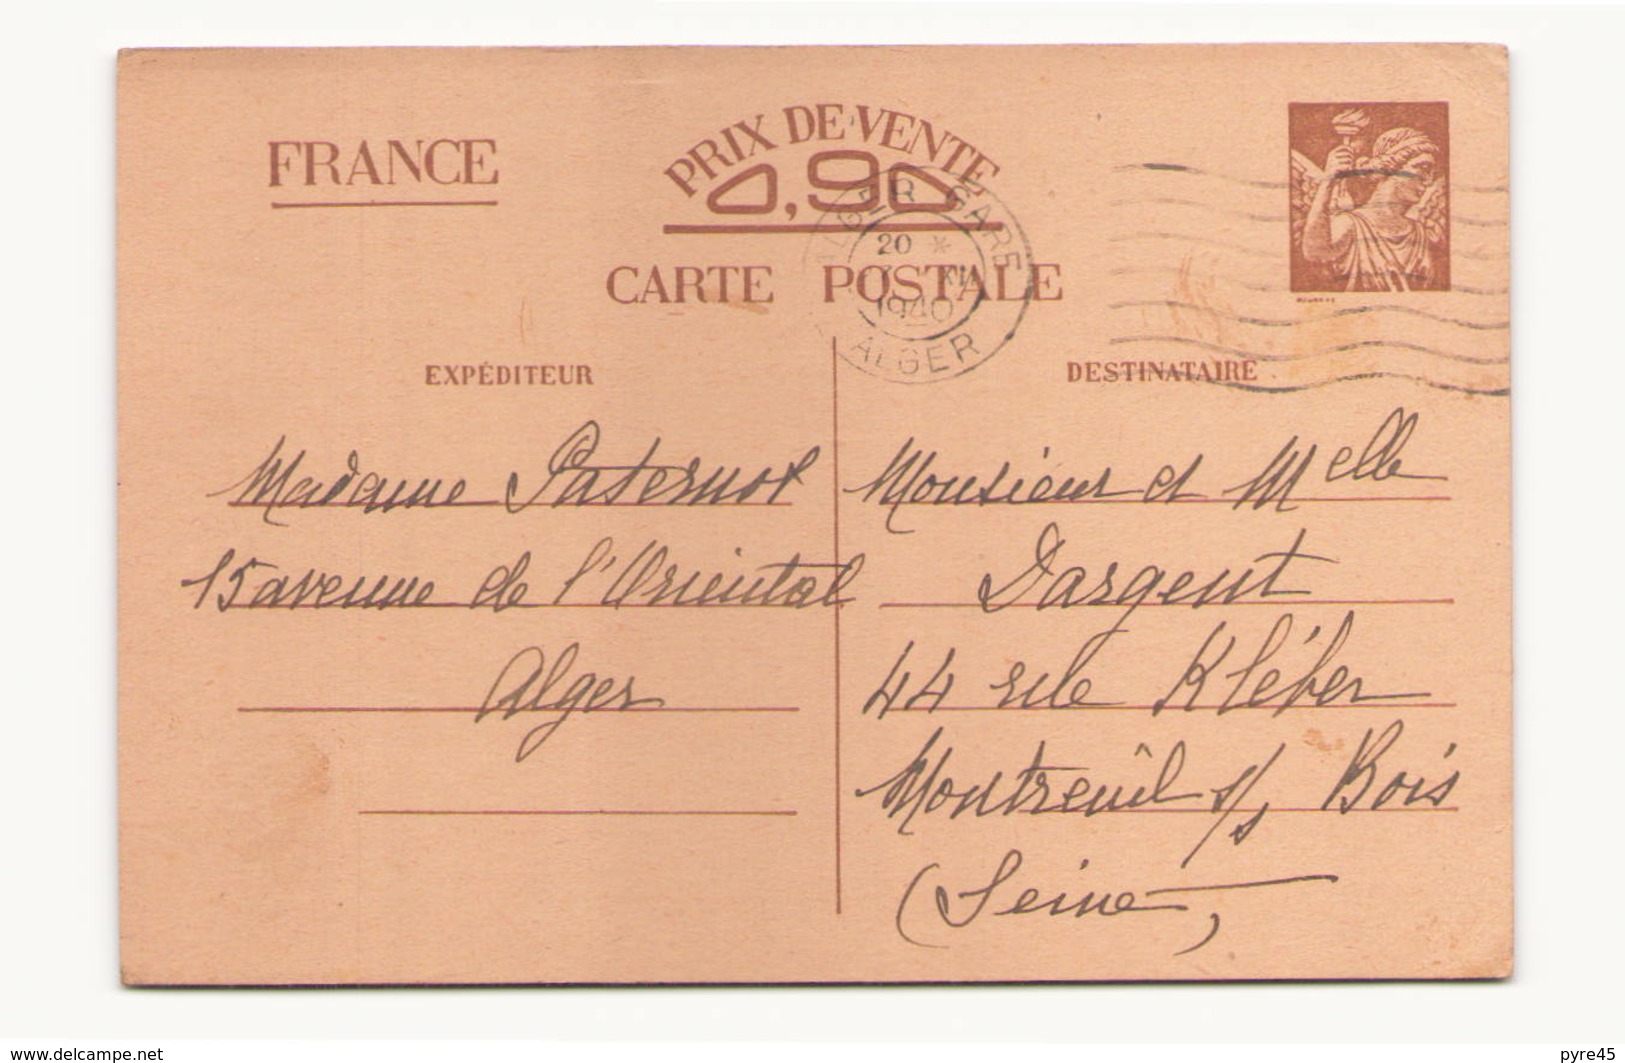 FRANCE
PRIX DE VENTE
0,90
CARTE POSTALE
ALGER GARE
20 *
XII
1940
ALGER
EXPÉDITEUR
Madame Paternot
15 avenue de l'Oriental
Alger
DESTINATAIRE
Monsieur et Melle
Dargent
44 rue Kléber
Montreuil s/s Bois
(Seine)
www.delcampe.net
pyre45